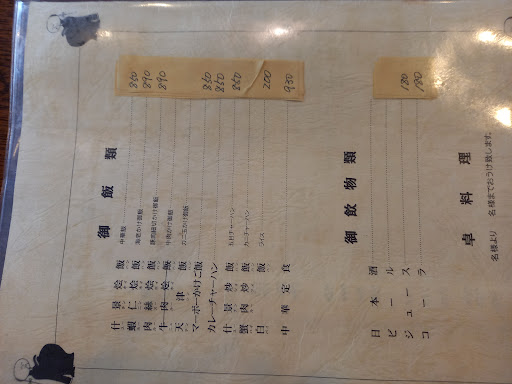 御飯類
什景烩飯 中華飯 860
蝦仁烩飯 海老かけ御飯 890
肉絲烩飯 豚肉細切かけ御飯 890
牛肉烩飯 牛肉かけ御飯
天津飯 カニ玉かけ御飯
マーボーかけご飯 850
カレーチャーハン 860
什景炒飯 五目チャーハン 860
蟹肉炒飯 カニチャーハン
白飯 ライス 200
中華定食 930
御飲物類
日本酒
ビール
ジュース 180
コーラ 180
卓料理
名様より 名様までおうけ致します。